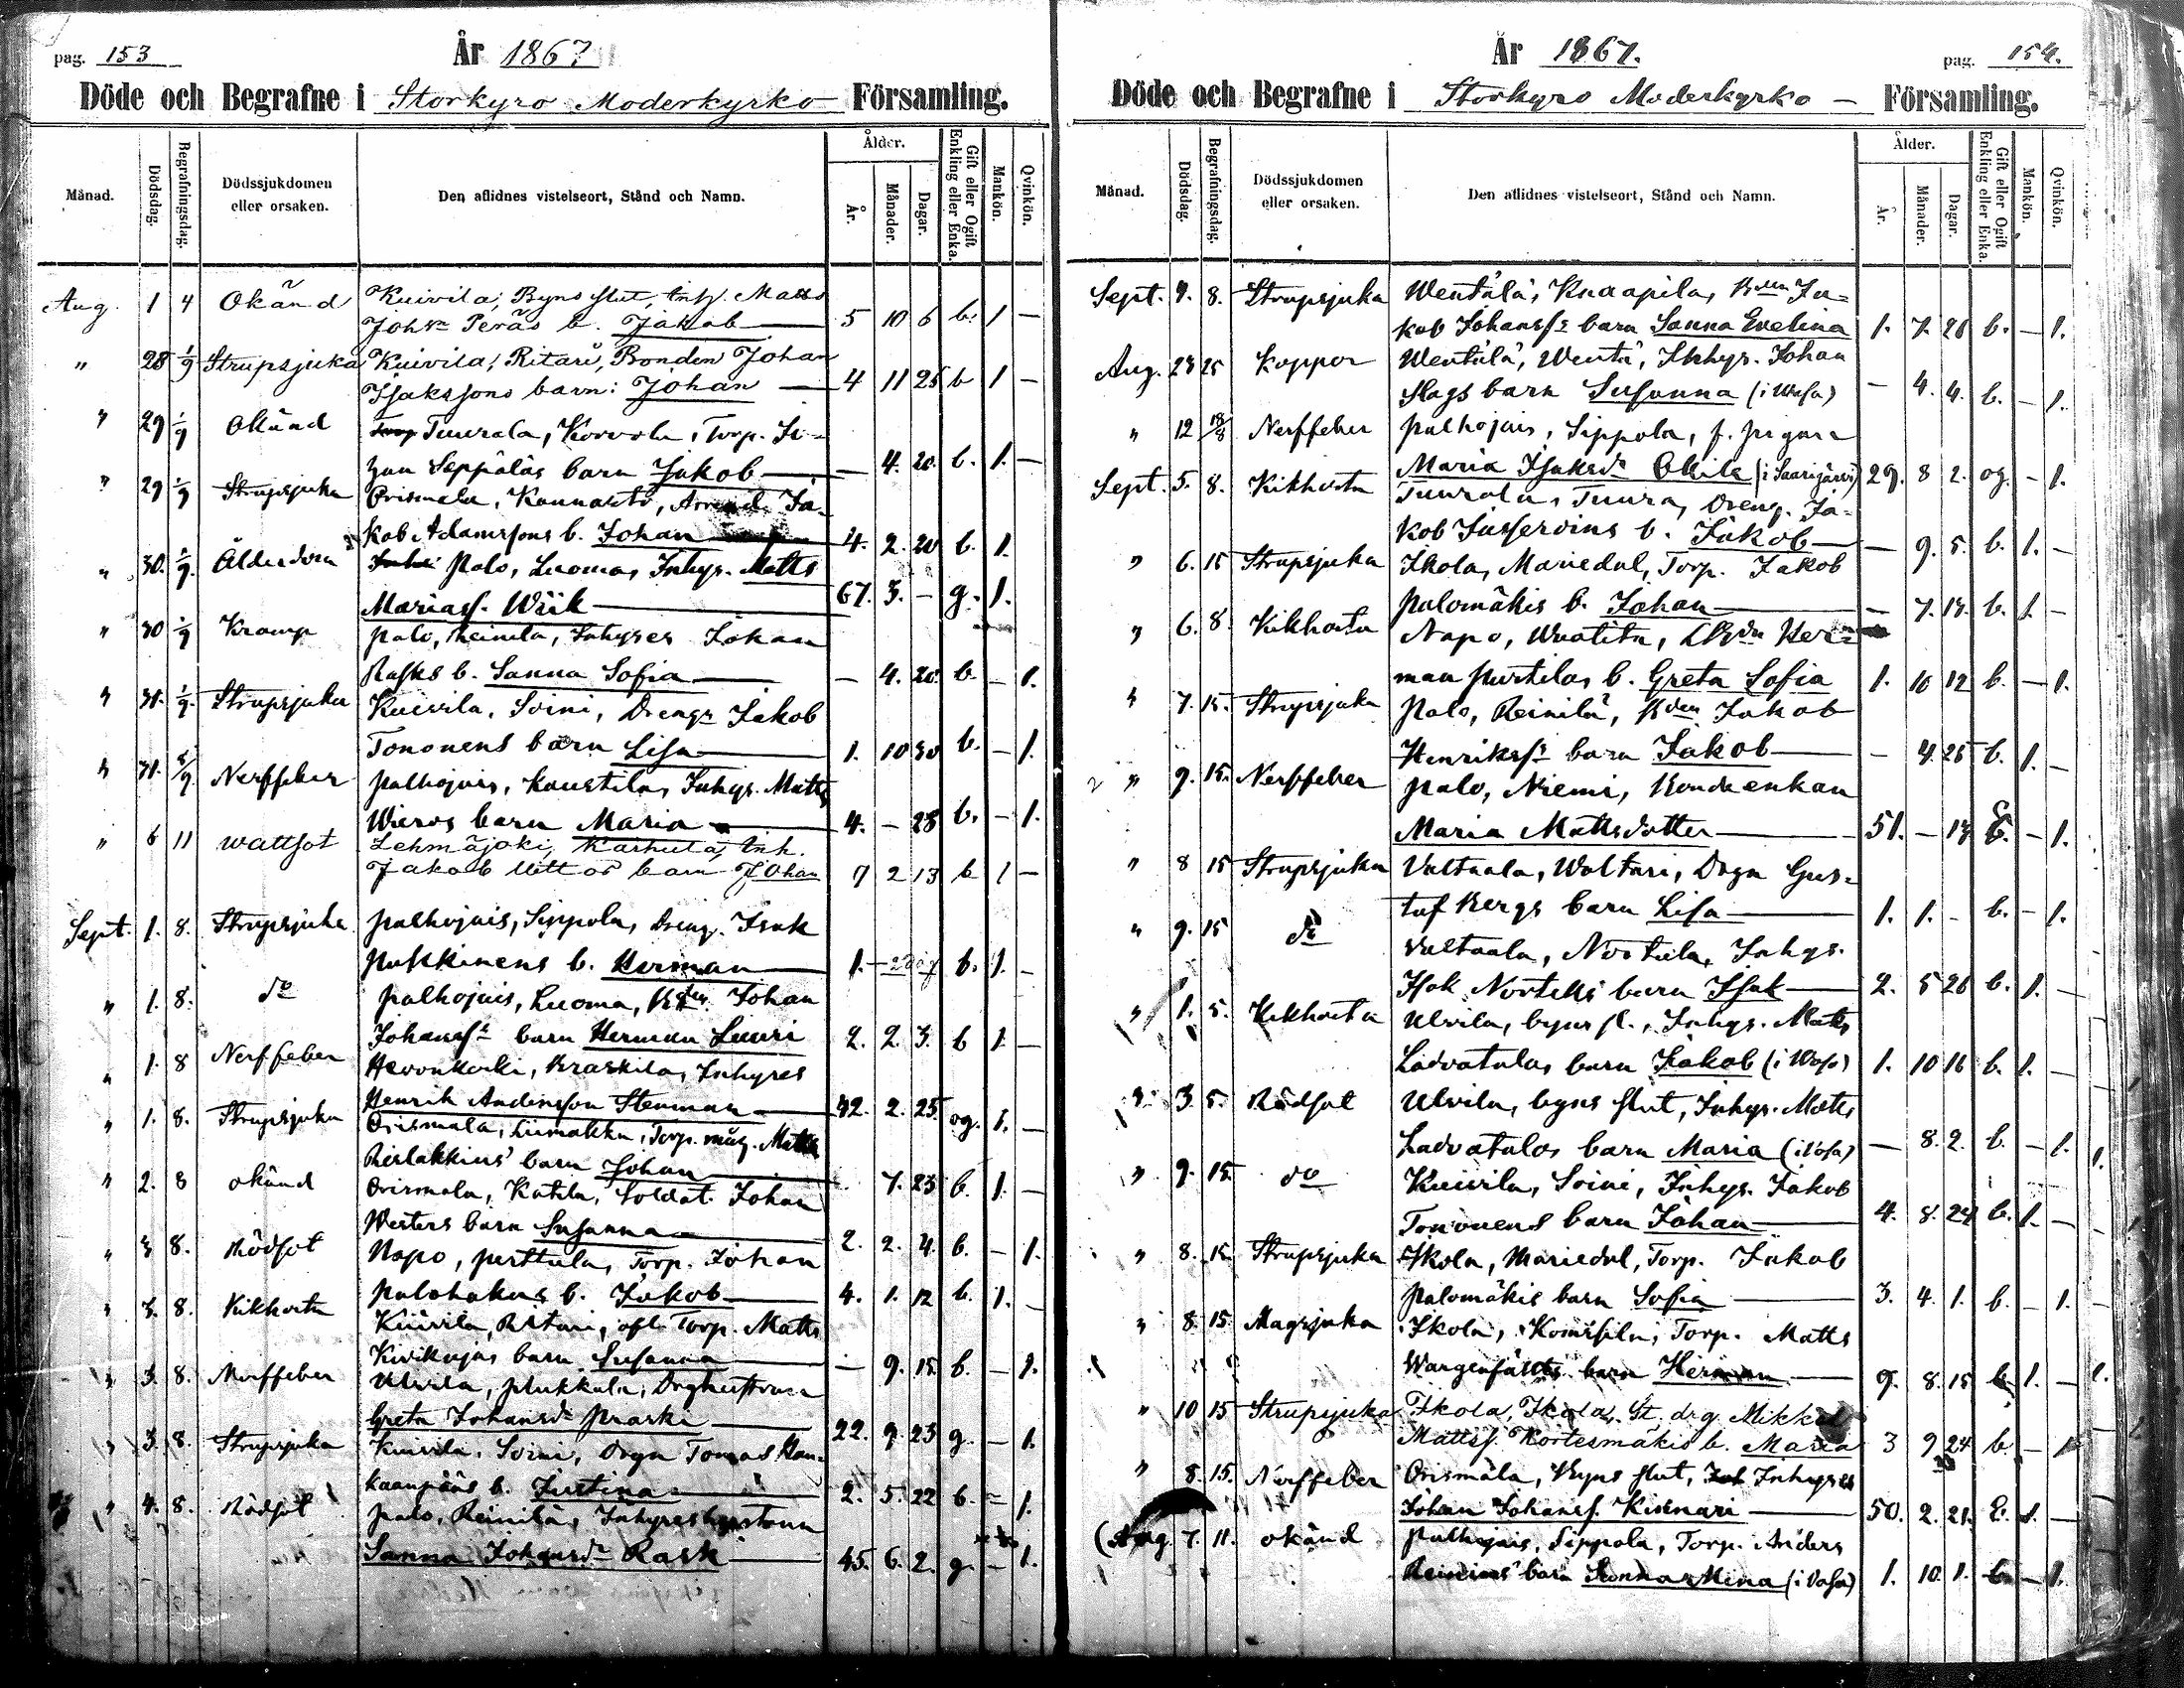 pag. 153
År 1867
Döde och Begrafne i Storkyro Moderkyrko Församling.
Månad.
Dödsdag.
Begrafningsdag.
Dödssjukdomen
eller orsaken.
Den aflidnes vistelseort, Stånd och Namn.
Ålder.
År.
Månader.
Dagar.
Gift eller Ogift
Enkling eller Enka.
Mankön.
Qvinkön.
Aug. 1 4 Okänd Kuivila, Byns slut, Inh. Matts
Johsn Peräs b. Jakob 5 10 6 b. 1 —
" 28 1/9 Strupsjuka Kuivila, Ritari, Bonden Johan
Isakssons barn: Johan 4 11 25 b 1 —
" 29 1/9 Okänd Tuurala, Korvola, Torp.
Seppäläs barn Jakob — 4. 20. b. 1. —
" 29 1/9 Strupsjuka Orismala, Kannasto, Ja-
kob Adamssons b. Johan 4. 2. 20 b. 1.
" 30. 1/9. Ålderdom Palo, Luoma, Inhys. Matts
Mariass. Wiik 67. 3. — g. 1.
" 30 1/9 Kramp Palo, Reinila, Inhyses Johan
Rasks b. Sanna Sofia — 4. 20. b. — 1.
" 31. 1/9. Strupsjuka Kuivila, Soini, Drengn Jakob
Tononens barn Lisa 1. 10 30 b. — 1.
" 31. 5/9. Nerffeber Palhojais, Kaustila, Inhys. Matts
Wieros barn Maria 4. — 28 b. — 1.
" 6 11 Wattsot Lehmäjoki, Karhula, Inh.
Jakob barn Johan 7 2 13 b 1 —
Sept. 1. 8. Strupsjuka Palhojais, Sippola, Dreng. Isak
Puskinens b. Herman 1. — b. 1. —
" 1. 8. do Palhojais, Luoma, Bden Johan
Johanss: barn Herman Lauri 2. 2. 3. b 1. —
" 1. 8 Nerffeber Hevonkoski, Kraskila, Inhyses
Henrik Andersson Stenman 42. 2. 25 og. 1. —
" 1. 8. Strupsjuka Orismala, Liimakka, Torp. måg. Matts
barn Johan 7. 23 b. 1. —
" 2. 8 okänd Orismala, Katila, Soldat Johan
Westers barn Susanna 2. 2. 4. b. — 1.
" 3 8. Rödsot Napo, Perttula, Torp. Johan
Palohakus b. Jakob 4. 1. 12 b. 1. —
" 3. 8. Kikhosta Kuivila, Ritari, Torp. Matts
Kivikujas barn Susanna — 9. 15 b. — 1.
" 3. 8. Nerffeber Ulvila, Pukkala, Drghustrun
Greta Johansdr Praski 22. 9. 23 g. — 1.
" 3. 8. Strupsjuka Kuivila, Soini, Drgn Tomas Kan-
kaanpääs b. Justina 2. 5. 22 b. — 1.
" 4. 8. Rödsot Palo, Reinilä, Inhyseshustrun
Sanna Johansdr Rask 45. 6. 2. g. — 1.
År 1867.
pag. 154.
Döde och Begrafne i Storkyro Moderkyrko — Församling.
Månad.
Dödsdag.
Begrafningsdag.
Dödssjukdomen
eller orsaken.
Den aflidnes vistelseort, Stånd och Namn.
Ålder.
År.
Månader.
Dagar.
Gift eller Ogift
Enkling eller Enka.
Mankön.
Qvinkön.
Sept. 8. Strupsjuka Wentälä, Knaapila, Ja-
kob Johanss: barn Sanna Evelina 1. 7. 26 b. — 1.
Aug. 23 25 Koppor Wentälä, Wentä, Inhys. Johan
Slags barn Susanna (i Wasa) — 4. 4. b. — 1.
" 12 18/8 Nerffeber Palhojais, Sippola, f. pigan
Maria Isaksdr Okila (i Saarijärvi) 29. 8 2. og — 1.
Sept. 5. 8. Kikhosta Tuurala, Tuura, Dreng. Ja-
kob b. Jakob — 9. 5. b. 1. —
" 6. 15 Strupsjuka Ikola, Mariedal, Torp. Jakob
Palomäkis b. Johan — 7. b. 1. —
" 6. 8. Kikhosta Napo, Waatila, Bdn Her-
man Purtilas b. Greta Sofia 1. 10 12 b. — 1.
" 7. 15. Strupsjuka Palo, Reinilä, Bden Jakob
Henrikss: barn Jakob — 4. 25 b. 1. —
" 9. 15. Nerffeber Palo, Niemi, Bondeenkan
Maria Mattsdotter 51. — E. — 1.
" 8 15 Strupsjuka Valtaala, Waltari, Drgn Gus-
taf Bergs barn Lisa 1. 1. — b. — 1.
" 9. 15 do Valtaala, Nortela, Inhys.
Isak Nortells barn Isak 2. 5 26 b. 1. —
" 1. 5. Kikhosta Ulvila, byns sl., Inhys. Matts
Ladvatalas barn Jakob (i Wasa) 1. 10 16 b. 1. —
" 3. 5. Rödsot Ulvila, byns slut, Inhys. Matts
Ladvatalas barn Maria (i Vasa) — 8. 2. b. — 1.
" 9. 15. do Kuivila, Soini, Inhys. Jakob
Tononens barn Johan 4. 8. 24 b. 1. —
" 8. 15. Strupsjuka Ikola, Mariedal, Torp. Jakob
Palomäkis barn Sofia 3. 4. 1. b. — 1.
" 8. 15. Magsjuka Ikola, Torp. Matts
barn Herman 9. 8. 15 b. 1. —
" 10 15 Strupsjuka Ikola, Ikola, St. drg Mikkel
Mattss. Kortesmäkis b. Maria 3 9 24 b. — 1
" 8. 15. Nerffeber Orismala, Byns slut, Inhyses
Johan Johanss. Kinnari 50. 2. 21. E. 1. —
(Aug. 7. 11. okänd Palhojais, Sippola, Torp. Anders
barn Sanna Mina (i Vasa) 1. 10. 1. b. — 1.